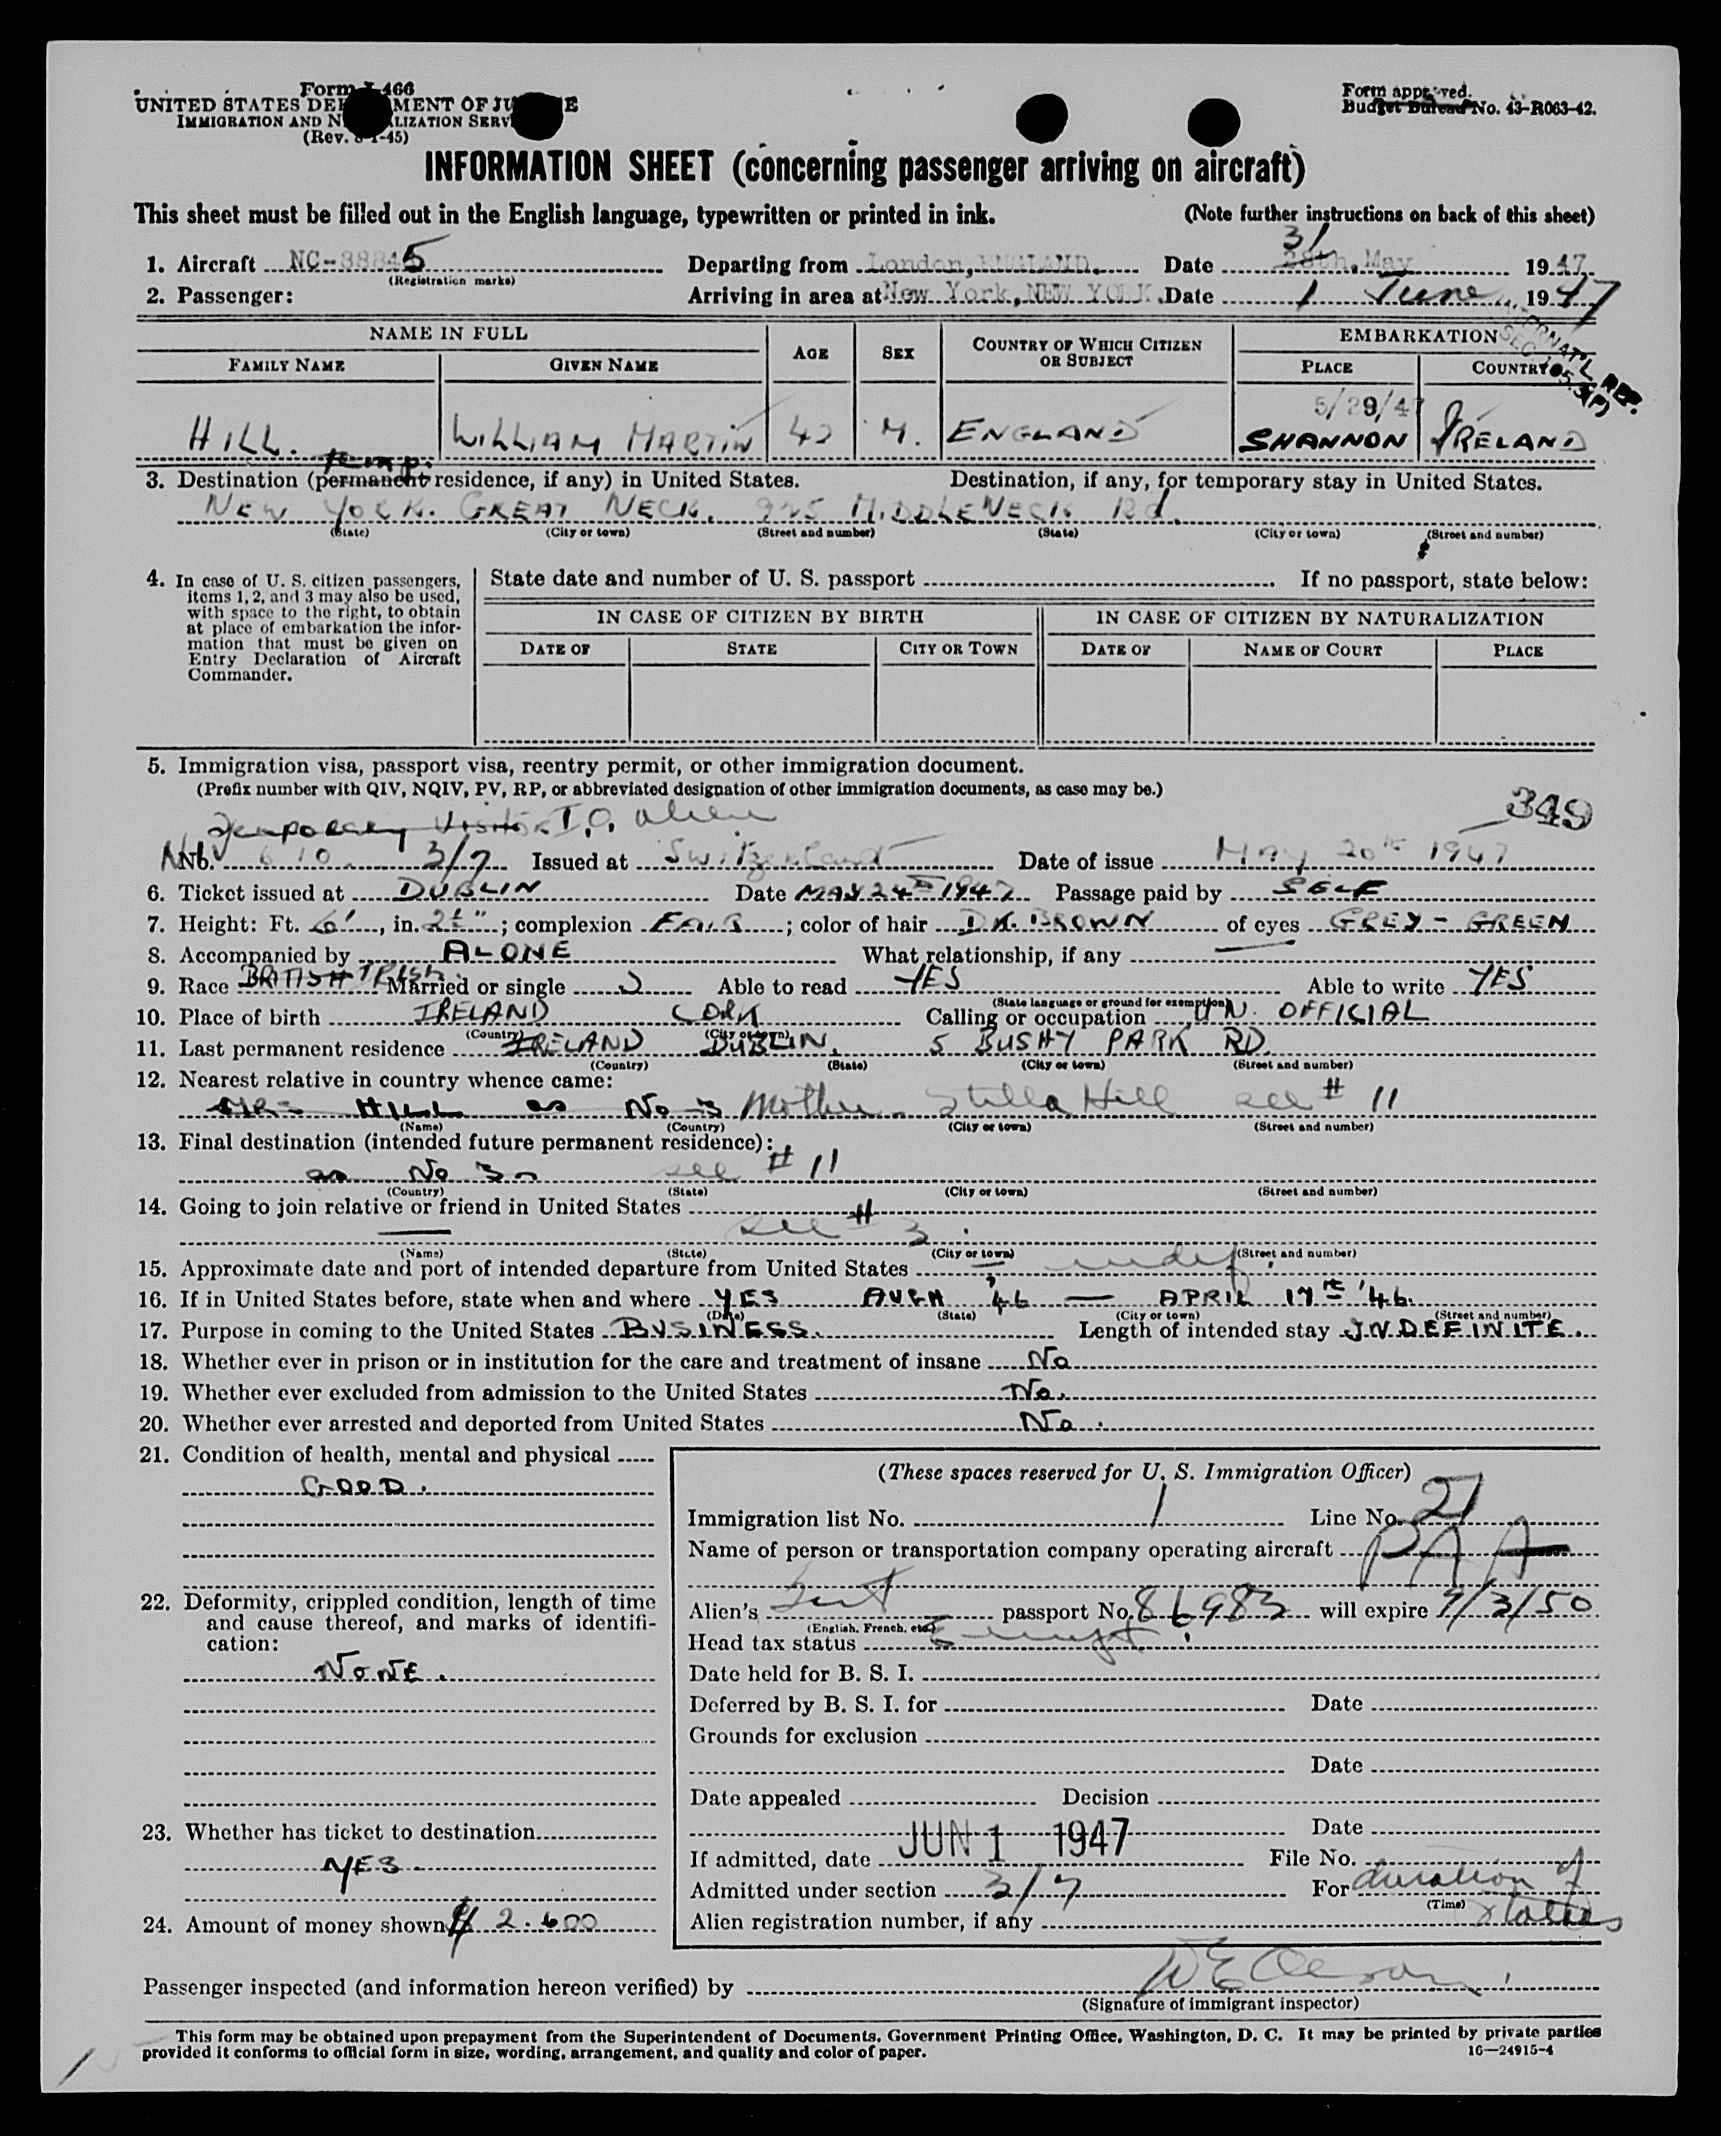 Form I-466
UNITED STATES DEPARTMENT OF JUSTICE
IMMIGRATION AND NATURALIZATION SERVICE
(Rev. 8-1-45)
Form approved.
Budget Bureau No. 43-R063-42.
INFORMATION SHEET (concerning passenger arriving on aircraft)
This sheet must be filled out in the English language, typewritten or printed in ink. (Note further instructions on back of this sheet)
31
1. Aircraft NC-88845 Departing from London, ENGLAND. Date 28th, May 1947
(Registration marks)
2. Passenger: Arriving in area at New York, NEW YORK Date 1 June, 1947
INTERNAT'L REP.
SEC. 3(P)
NAME IN FULL AGE SEX COUNTRY OF WHICH CITIZEN OR SUBJECT EMBARKATION
FAMILY NAME GIVEN NAME PLACE COUNTRY
5/29/47
HILL. WILLIAM MARTIN 42 M. ENGLAND SHANNON IRELAND
temp.
3. Destination (permanent residence, if any) in United States. Destination, if any, for temporary stay in United States.
NEW YORK. GREAT NECK. 925 MIDDLENECK Rd.
(State) (City or town) (Street and number) (State) (City or town) (Street and number)
4. In case of U. S. citizen passengers, items 1, 2, and 3 may also be used, with space to the right, to obtain at place of embarkation the information that must be given on Entry Declaration of Aircraft Commander.
State date and number of U. S. passport If no passport, state below:
IN CASE OF CITIZEN BY BIRTH IN CASE OF CITIZEN BY NATURALIZATION
DATE OF STATE CITY OR TOWN DATE OF NAME OF COURT PLACE
5. Immigration visa, passport visa, reentry permit, or other immigration document.
(Prefix number with QIV, NQIV, PV, RP, or abbreviated designation of other immigration documents, as case may be.)
349
Temporary Visitor I.O. Alien
No. 610 3/7 Issued at Switzerland Date of issue May 20th 1947
6. Ticket issued at DUBLIN Date MAY 24th 1947 Passage paid by SELF
7. Height: Ft. 6', in. 2½"; complexion FAIR; color of hair DK. BROWN of eyes GREY-GREEN
8. Accompanied by ALONE What relationship, if any —
9. Race BRITISH IRISH. Married or single S Able to read YES Able to write YES
(State language or ground for exemption)
10. Place of birth IRELAND CORK Calling or occupation UN. OFFICIAL
(Country) (City or town)
11. Last permanent residence IRELAND DUBLIN. 5 BUSHY PARK RD.
(Country) (State) (City or town) (Street and number)
12. Nearest relative in country whence came:
MRS HILL as No 3 Mother. Stella Hill see # 11
(Name) (Country) (City or town) (Street and number)
13. Final destination (intended future permanent residence):
as No 3 see # 11
(Country) (State) (City or town) (Street and number)
14. Going to join relative or friend in United States
— see # 3.
(Name) (State) (City or town) (Street and number)
15. Approximate date and port of intended departure from United States — indef.
16. If in United States before, state when and where YES '46 — APRIL 17th '46.
(Date) (State) (City or town) (Street and number)
17. Purpose in coming to the United States BUSINESS. Length of intended stay INDEFINITE.
18. Whether ever in prison or in institution for the care and treatment of insane No
19. Whether ever excluded from admission to the United States No.
20. Whether ever arrested and deported from United States No.
21. Condition of health, mental and physical
GOOD.
22. Deformity, crippled condition, length of time and cause thereof, and marks of identification:
NONE.
23. Whether has ticket to destination
YES.
24. Amount of money shown $ 2.600
(These spaces reserved for U. S. Immigration Officer)
Immigration list No. 1 Line No. 21
Name of person or transportation company operating aircraft PAA
Alien's passport No. 86983 will expire 9/3/50
(English, French, etc.)
Head tax status Exempt
Date held for B. S. I.
Deferred by B. S. I. for Date
Grounds for exclusion
Date
Date appealed Decision
Date
If admitted, date JUN 1 1947 File No.
Admitted under section 3/7 For duration of status
(Time)
Alien registration number, if any
Passenger inspected (and information hereon verified) by
(Signature of immigrant inspector)
This form may be obtained upon prepayment from the Superintendent of Documents, Government Printing Office, Washington, D. C. It may be printed by private parties
provided it conforms to official form in size, wording, arrangement, and quality and color of paper.
16—24915-4